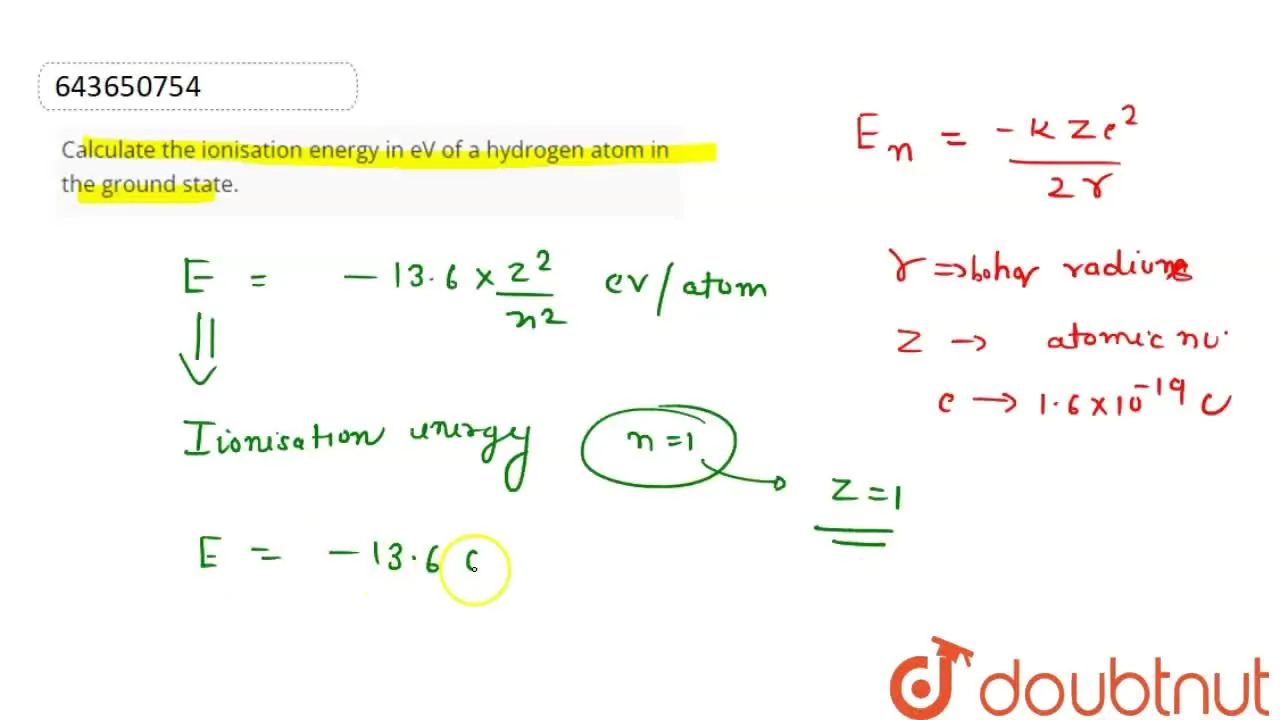 643650754
Calculate the ionisation energy in eV of a hydrogen atom in
the ground state.
E = - 13.6 × Z²/n² eV/atom
Iionisation energy n = 1
Z = 1
E = - 13.6 e
Eₙ = -KZe²/2r
r ⇒ bohar radius
Z → atomic no.
e → 1.6 × 10⁻¹⁹ C
doubtnut